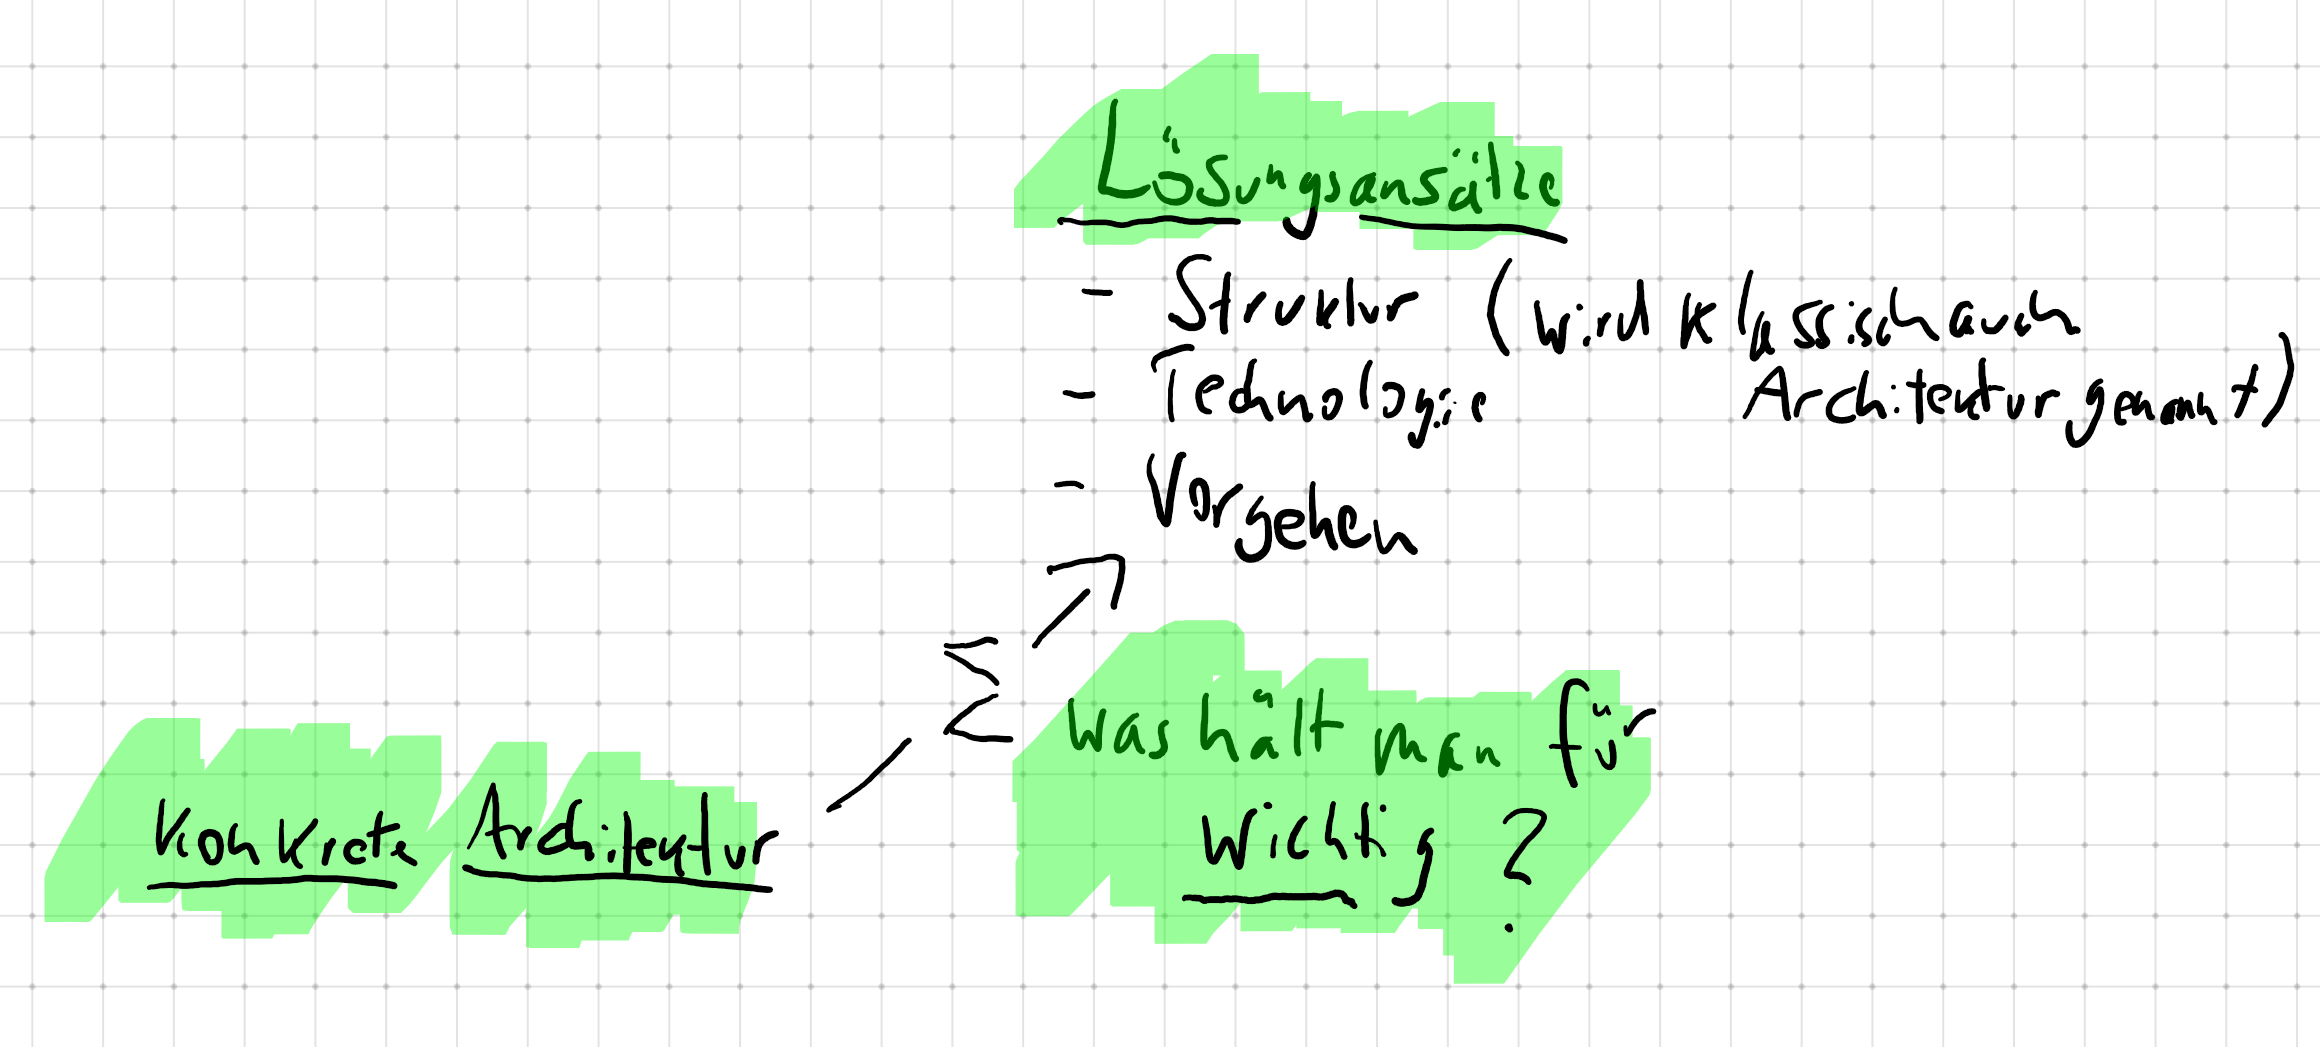 Lösungsansätze
- Struktur (wird klassisch auch
Architektur genannt)
- Technologie
- Vorgehen
Σ
was hält man für
wichtig?
Konkrete Architektur